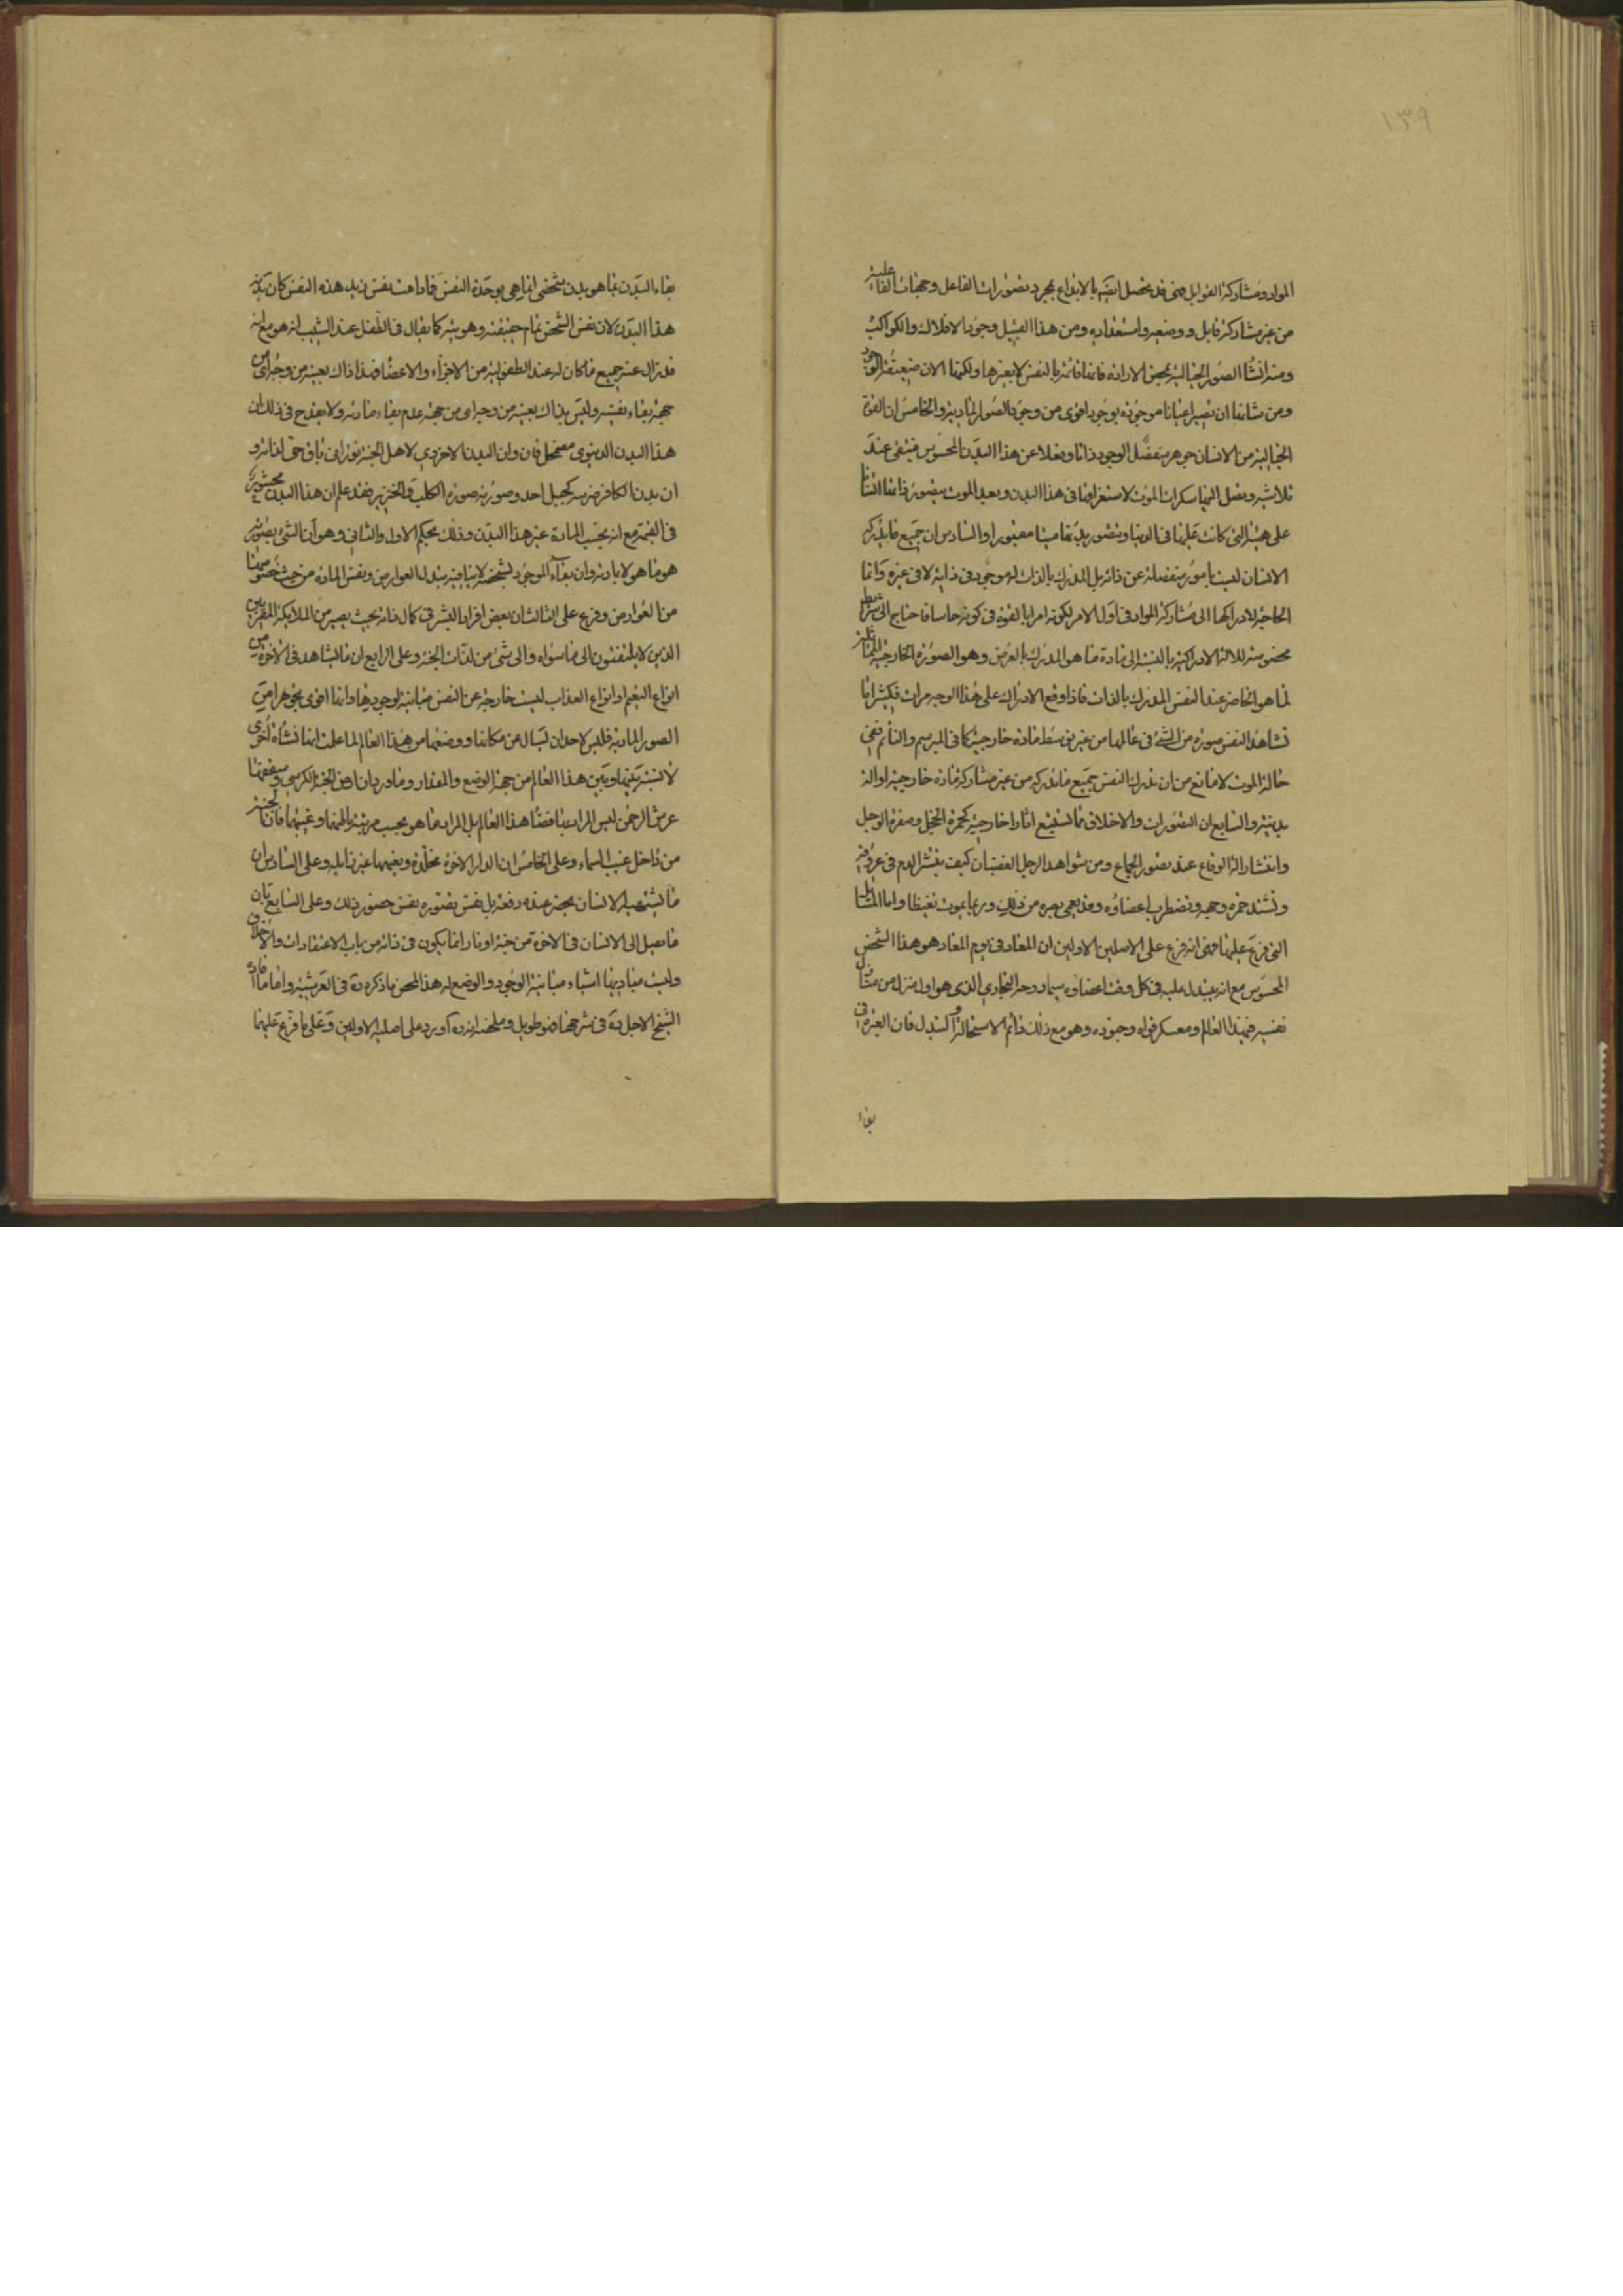 ١٣٩
المواد ومشاركة القوابل فهي قد تحصل ايضا بالابداع بمجرد تصورات الفاعل وجهات الفاعلية
من غير مشاركة قابل ووضعه واستعداده ومن هذا القبيل وجود الافلاك والكواكب
ومنه انشا الصور الخيالية بمحض الارادة فانها قائمة بالنفس لا بغيرها ولكنها الان ضعيفة الوجود
ومن شانها ان تصير اعيانا موجودة بوجود اقوى من وجود الصور المادية والخامس ان القوة
الخيالية من الانسان جوهر منفصل الوجود ذاتا وفعلا عن هذا البدن المحسوس فيبقى عند
تلاشيه ويصل اليها سكرات الموت لاستغراقها في هذا البدن وبعد الموت يتصور ذاتها انسانا
على هيئة التي كانت عليها في الدنيا ويتصور بدنها ميتا مقبورا والسادس ان جميع ما يدركه
الانسان ليست بامور منفصلة عن ذاته بل المدرك بالذات له موجود في ذاته لا في غيره وانما
الحاجة لادراكها الى مشاركة المواد في اول الامر لكونه امرا بالقوة في كونه حاسا فاحتاج الى شرايط
مخصوصة للالة الادراكية بالنسبة الى مادة ما هو المدرك بالعرض وهو الصورة الخارجية المماثلة
لما هو الحاضر عند النفس المدرك بالذات فاذا وقع الادراك على هذا الوجه مرات فكثيرا ما
تشاهد النفس صورة من الشيء في عالمها من غير توسط مادة خارجية كما في المبرسم والنائم ففي
حالة الموت لا مانع من ان تدرك النفس جميع ما تدركه من غير مشاركة مادة خارجية او الة
بدنية والسابع ان التصورات والاخلاق مما تستتبع اثارا خارجية كحمرة الخجل وصفرة الوجل
وانتشار الة الوقاع عند تصور الجماع ومن شواهد الرجل الغضبان كيف ينتشر الدم في عروقه
وتشتد حمرة وجهه وتضطرب اعضاؤه وقد يعمى بصره من ذلك وربما يموت تغيظا واما المسائل
التي فرع عليها فهي انه فرع على الاصلين الاولين ان المعاد في يوم المعاد هو هذا الشخص
المحسوس مع انه يتبدل عليه في كل وقت اعضاؤه سيما روحه البخاري الذي هو اول منزل من منازل
نفسه في هذا العالم ومعسكر قواه وجنوده وهو مع ذلك دائم الاستحالة والتبدل فان العبرة في
بقاء
بقاء البدن بما هو بدن شخصي انما هي بوحدة النفس فما دامت نفس زيد هذه النفس كان بدنه
هذا البدن لان نفس الشخص تمام حقيقته وهويته كما يقال في الطفل عند الشيب انه هو مع انه
قد زال عنه جميع ما كان له عند الطفولية من الاجزاء والاعضا فهذا ذاك بعينه من وجه اي من
جهة بقاء نفسه وليس بذاك بعينه من وجه اي من جهة عدم بقاء مادته ولا يقدح في ذلك ان
هذا البدن الدنيوي مضمحل فان وان البدن الاخروي لاهل الجنة نوراني باق حي لذاته و
ان بدن الكافر ضرسه كجبل احد وصورته صورة الكلب والخنزير فقد علم ان هذا البدن محشور
في القيمة مع انه بحسب المادة غير هذا البدن وذلك بحكم الاول والثاني وهو ان الشيء بصورته
هو ما هو لا بمادته وان بقاء الموجود بشخصه لا ينافيه تبدل العوارض ونفس المادة من حيث خصوصها
من العوارض وفرع على الثالث ان بعض افراد البشر في كمال ذاته بحيث يصير من الملائكة المقربين
الذين لا يلتفتون الى ما سواه والى شيء من لذات الجنة وعلى الرابع ان ما يشاهد في الاخرة من
انواع النعيم وانواع العذاب ليست خارجة عن النفس مباينة لوجودها وانها اقوى تجوهرا من
الصور المادية فليس لاحد ان يسال عن مكانها ووضعها من هذا العالم لما علمت انها نشاة اخرى
لا نسبة بينها وبين هذا العالم من جهة الوضع والمقدار وما ورد بان ارض الجنة الكرسي وسقفها
عرش الرحمن ليس المراد بها فضاء هذا العالم بل المراد ما هو بحسب مرتبة باطنهما وغيبهما فان الجنة
من داخل غيب السماء وعلى الخامس ان الدار الاخرة مخلدة ونعيمها غير زايله وعلى السادس ان
ما يشتهيه الانسان يحضر عنده دفعة بل نفس تصوره نفس حضور ذلك وعلى السابع بان
ما يصل الى الانسان في الاخرة من جنة او نار انما يكون في ذاته من باب الاعتقادات والاخلاق
وليست مباديها اشياء مباينة الوجود والوضع له هذا ملخص ما ذكره ره في العرشية واما ما افاده
الشيخ الاجل ره في شرحها فهو طويل وملخصه انه ره اورد على اصليه الاولين وعلى ما فرع عليهما